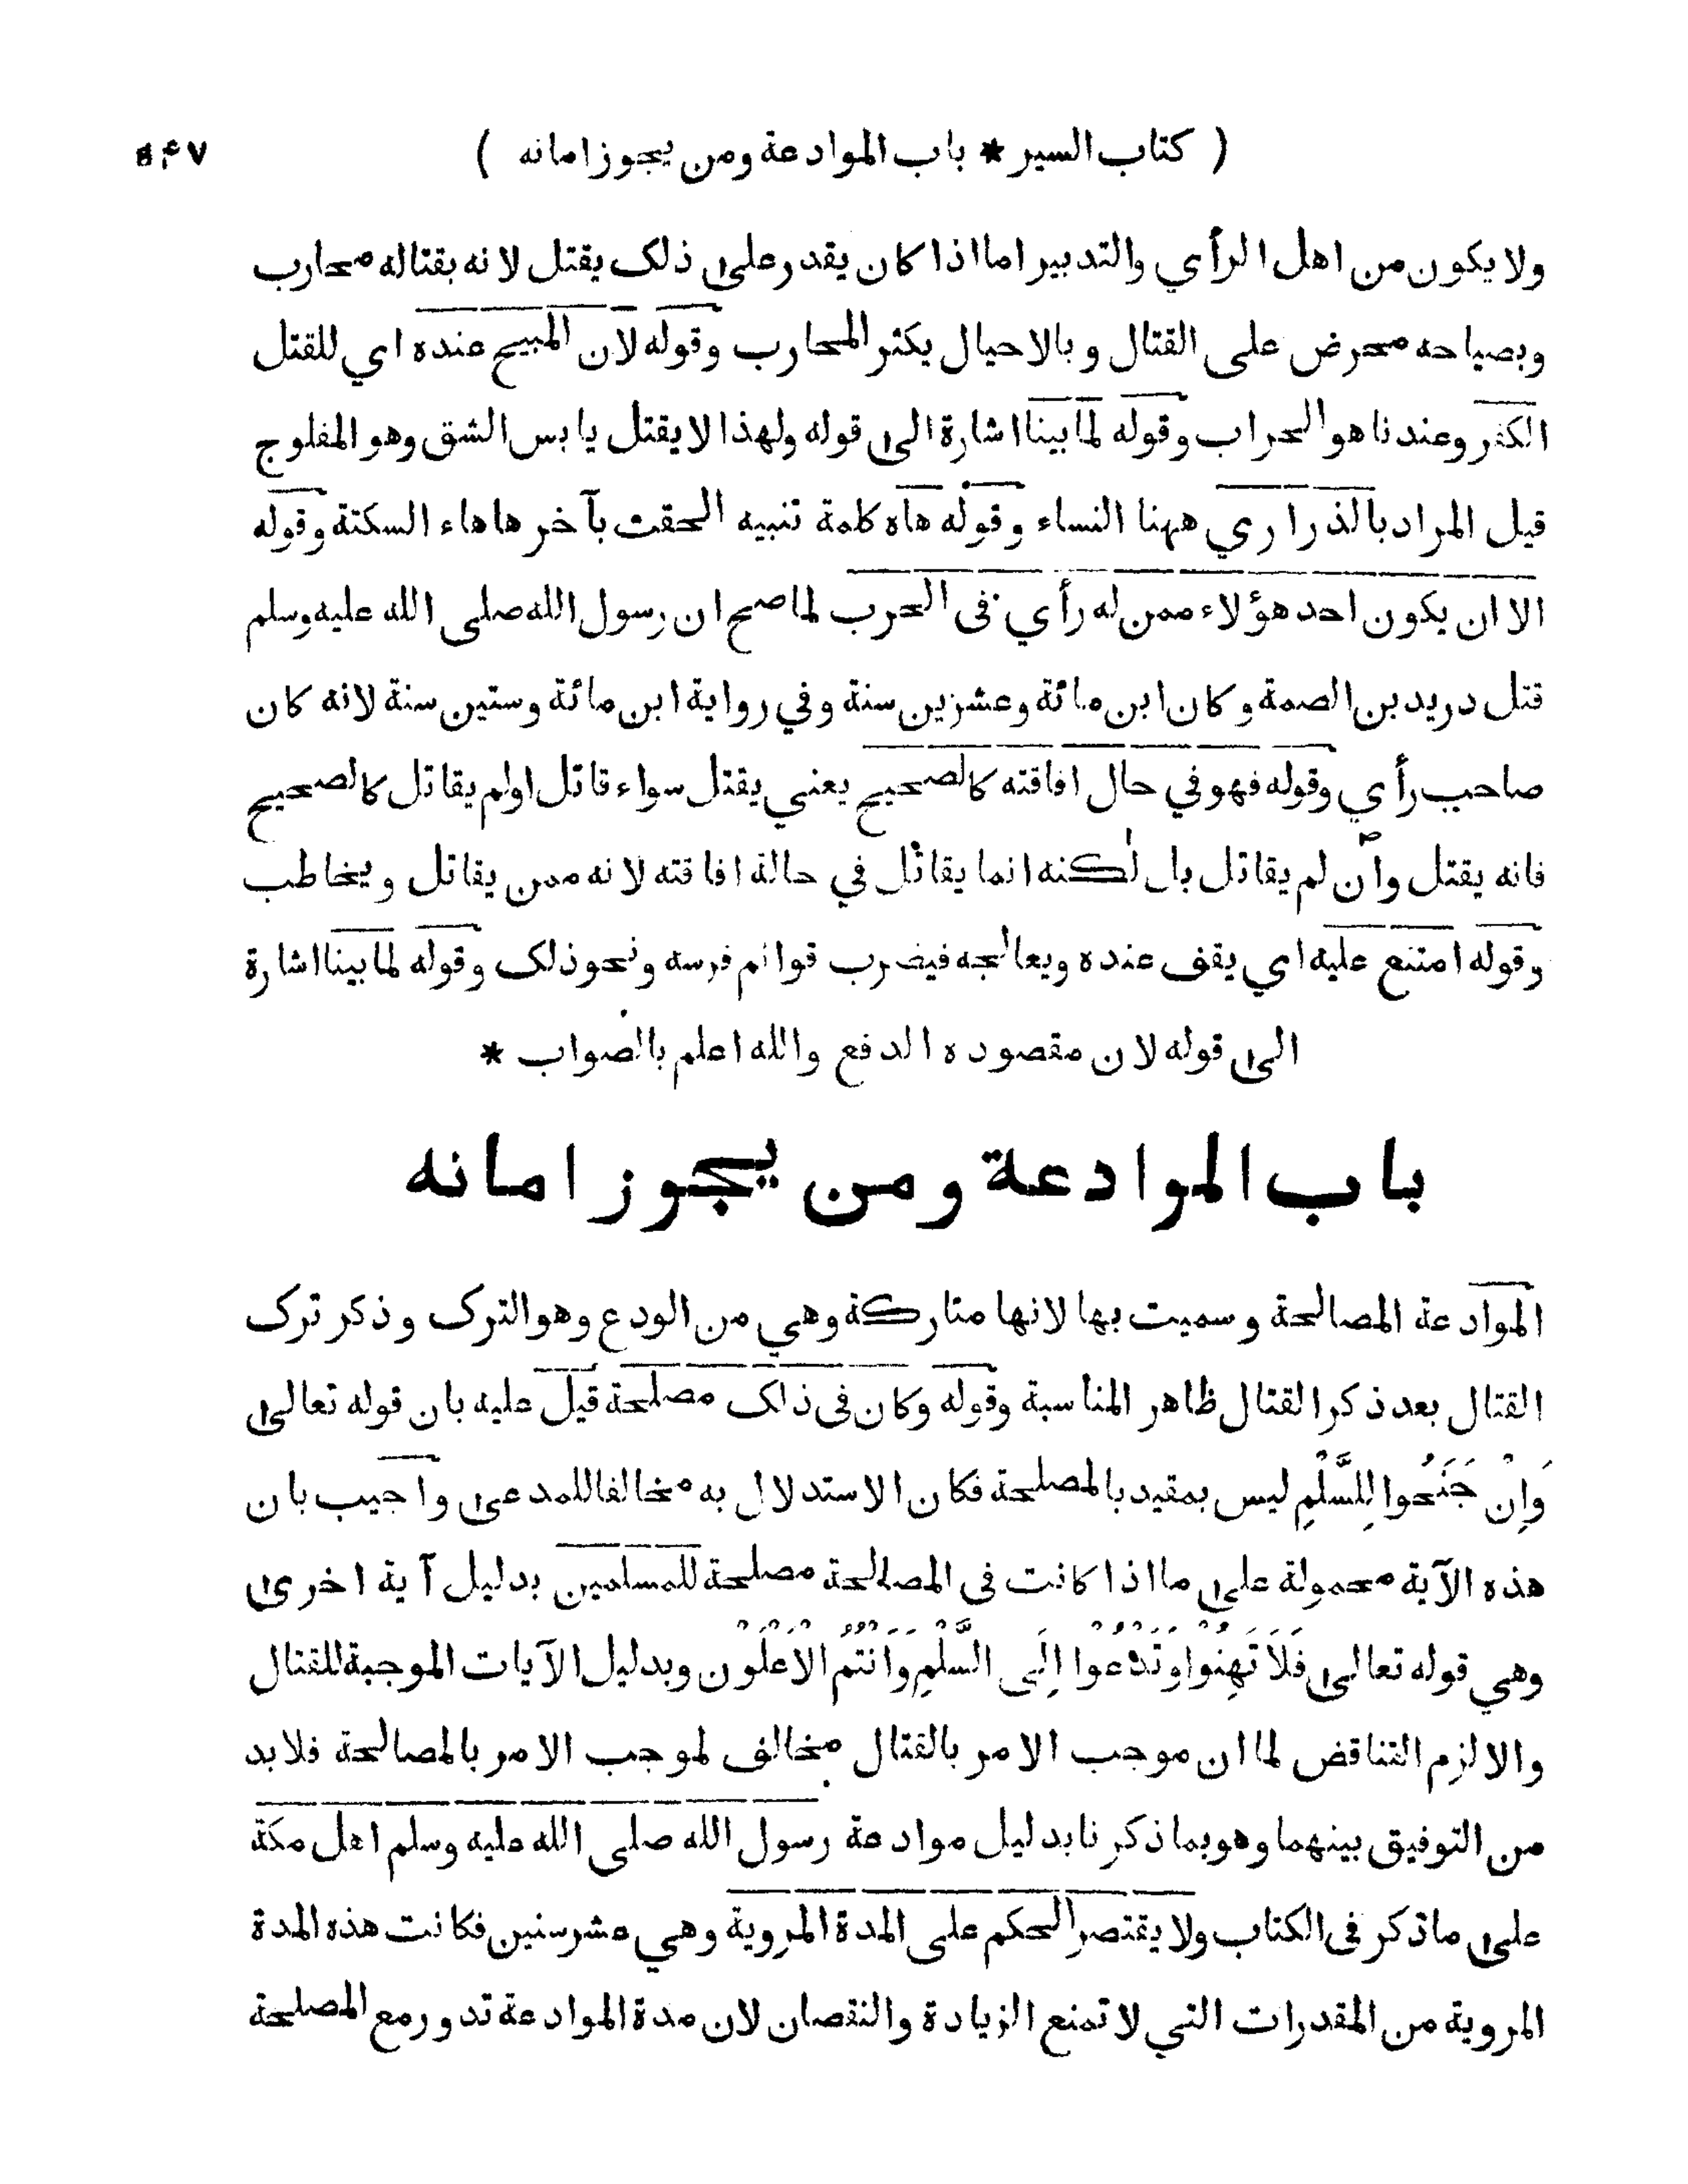 ( كتاب السير * باب الموادعة ومن يجوز امانه ) ۵۴۷
ولا يكون من اهل الرأي والتدبير اما اذا كان يقدر على ذلك يقتل لانه بقتاله محارب
وبصياحه محرض على القتال وبالاحيال يكثر المحارب وقوله لان المبيح عنده اي للقتل
الكفر وعندنا هو الحراب وقوله لما بينا اشارة الى قوله ولهذا لا يقتل يابس الشق وهو المفلوج
قيل المراد بالذراري ههنا النساء وقوله هاه كلمة تنبيه الحقت بآخر ها هاء السكتة وقوله
الا ان يكون احد هؤلاء ممن له رأي فى الحرب لما صح ان رسول الله صلى الله عليه وسلم
قتل دريد بن الصمة وكان ابن مائة وعشرين سنة وفي رواية ابن مائة وستين سنة لانه كان
صاحب رأي وقوله فهو في حال افاقته كالصحيح يعني يقتل سواء قاتل اولم يقاتل كالصحيح
فانه يقتل وان لم يقاتل بل لكنه انما يقاتل في حالة افاقته لانه ممن يقاتل ويخاطب
وقوله امتنع عليه اي يقف عنده ويعالجه فيضرب قوائم فرسه ونحو ذلك وقوله لما بينا اشارة
الى قوله لان مقصوده الدفع والله اعلم بالصواب *
باب الموادعة ومن يجوز امانه
الموادعة المصالحة وسميت بها لانها متاركة وهي من الودع وهو الترك وذكر ترك
القتال بعد ذكر القتال ظاهر المناسبة وقوله وكان فى ذلك مصلحة قيل عليه بان قوله تعالى
وَاِنْ جَنَحُوا لِلسَّلْمِ ليس بمقيد بالمصلحة فكان الاستدلال به مخالفا للمدعى واجيب بان
هذه الآية محمولة على ما اذا كانت فى المصالحة مصلحة للمسلمين بدليل آية اخرى
وهي قوله تعالى فَلَا تَهِنُوا وَتَدْعُوا اِلَى السَّلْمِ وَاَنْتُمُ الْاَعْلَوْن وبدليل الآيات الموجبة للقتال
والا لزم التناقض لما ان موجب الامر بالقتال مخالف لموجب الامر بالمصالحة فلا بد
من التوفيق بينهما وهو بما ذكرنا بدليل موادعة رسول الله صلى الله عليه وسلم اهل مكة
على ما ذكر فى الكتاب ولا يقتصر الحكم على المدة المروية وهي عشر سنين فكانت هذه المدة
المروية من المقدرات التي لا تمنع الزيادة والنقصان لان مدة الموادعة تدور مع المصلحة